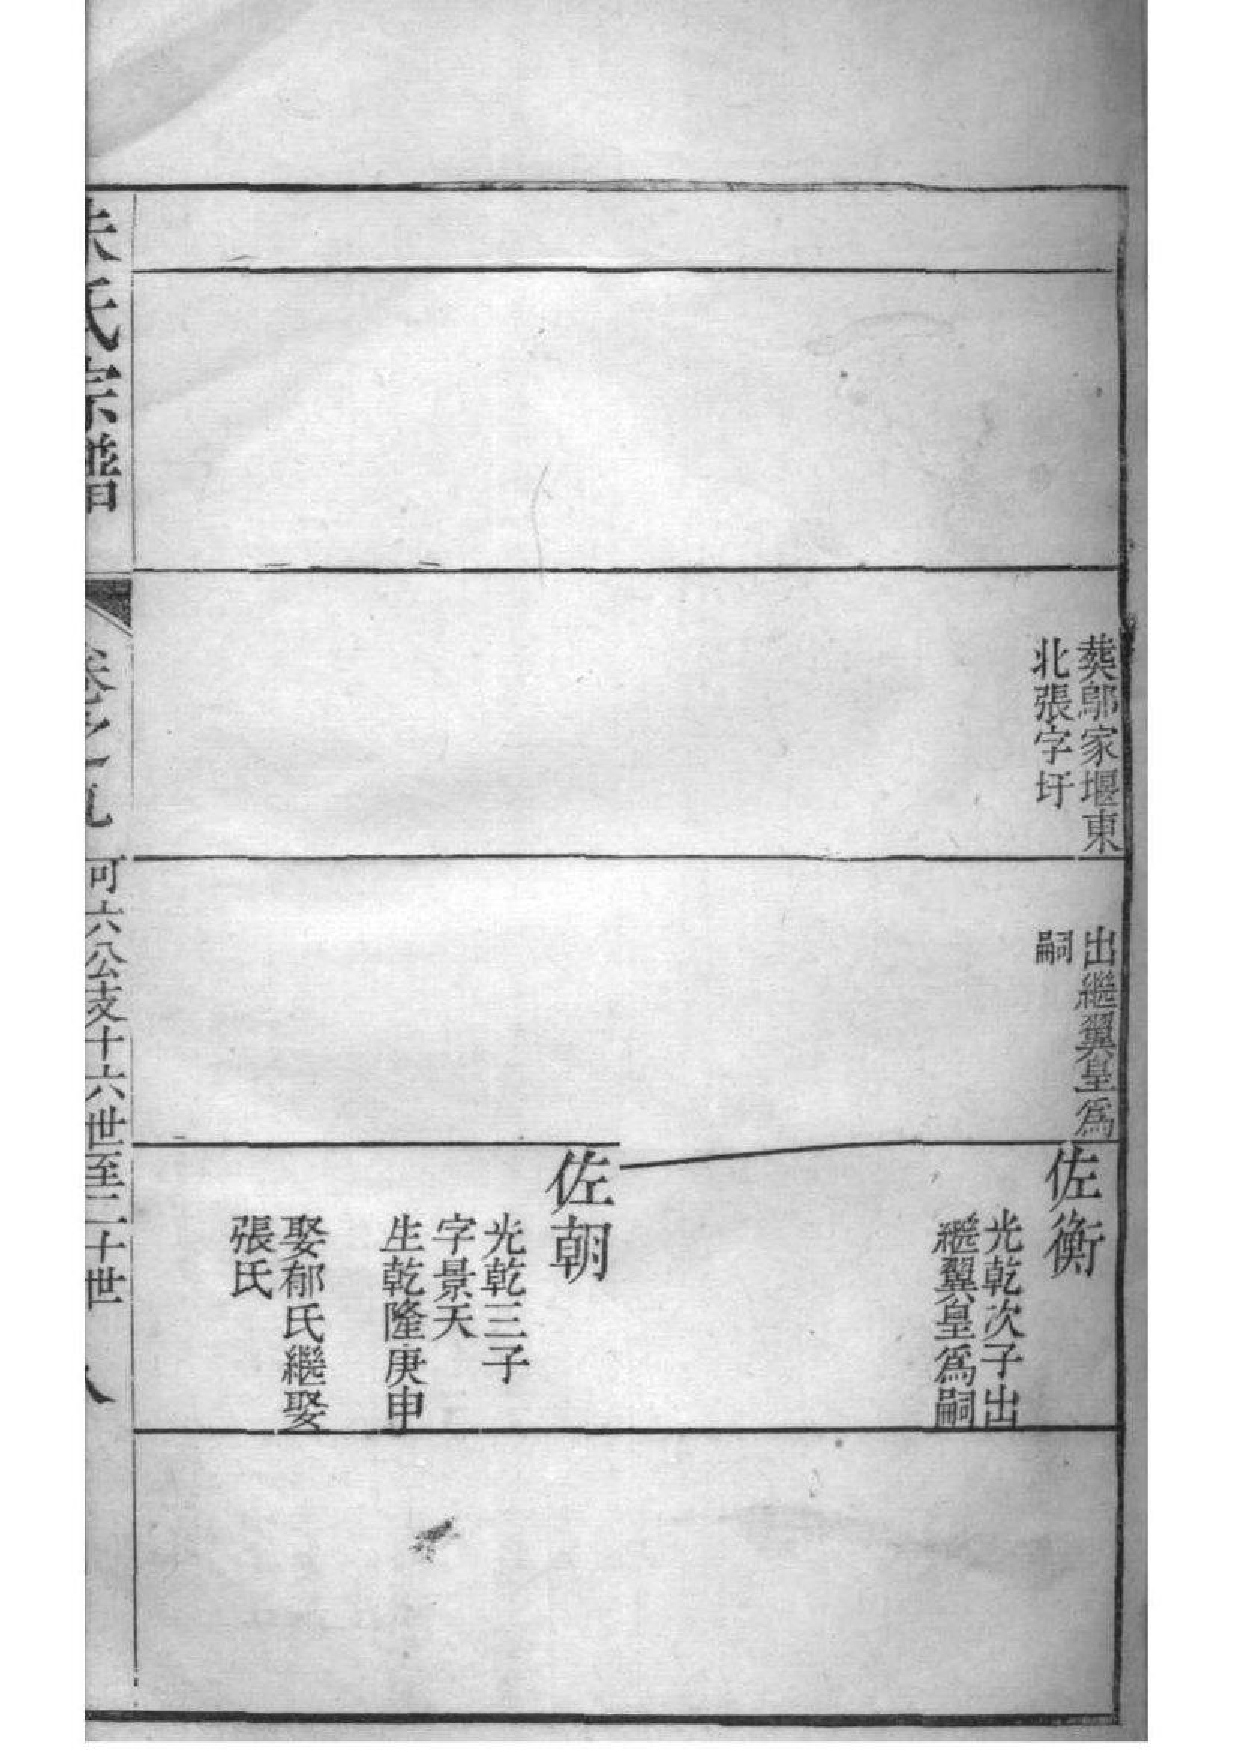 葬鄔家堰東
北張字圩
出繼翼皇為
嗣
佐衡
光乾次子出
繼翼皇為嗣
佐朝
光乾三子
字景天
生乾隆庚申
娶郁氏繼娶
張氏
朱氏宗譜
卷之九
可六公支十六世至二十世
八